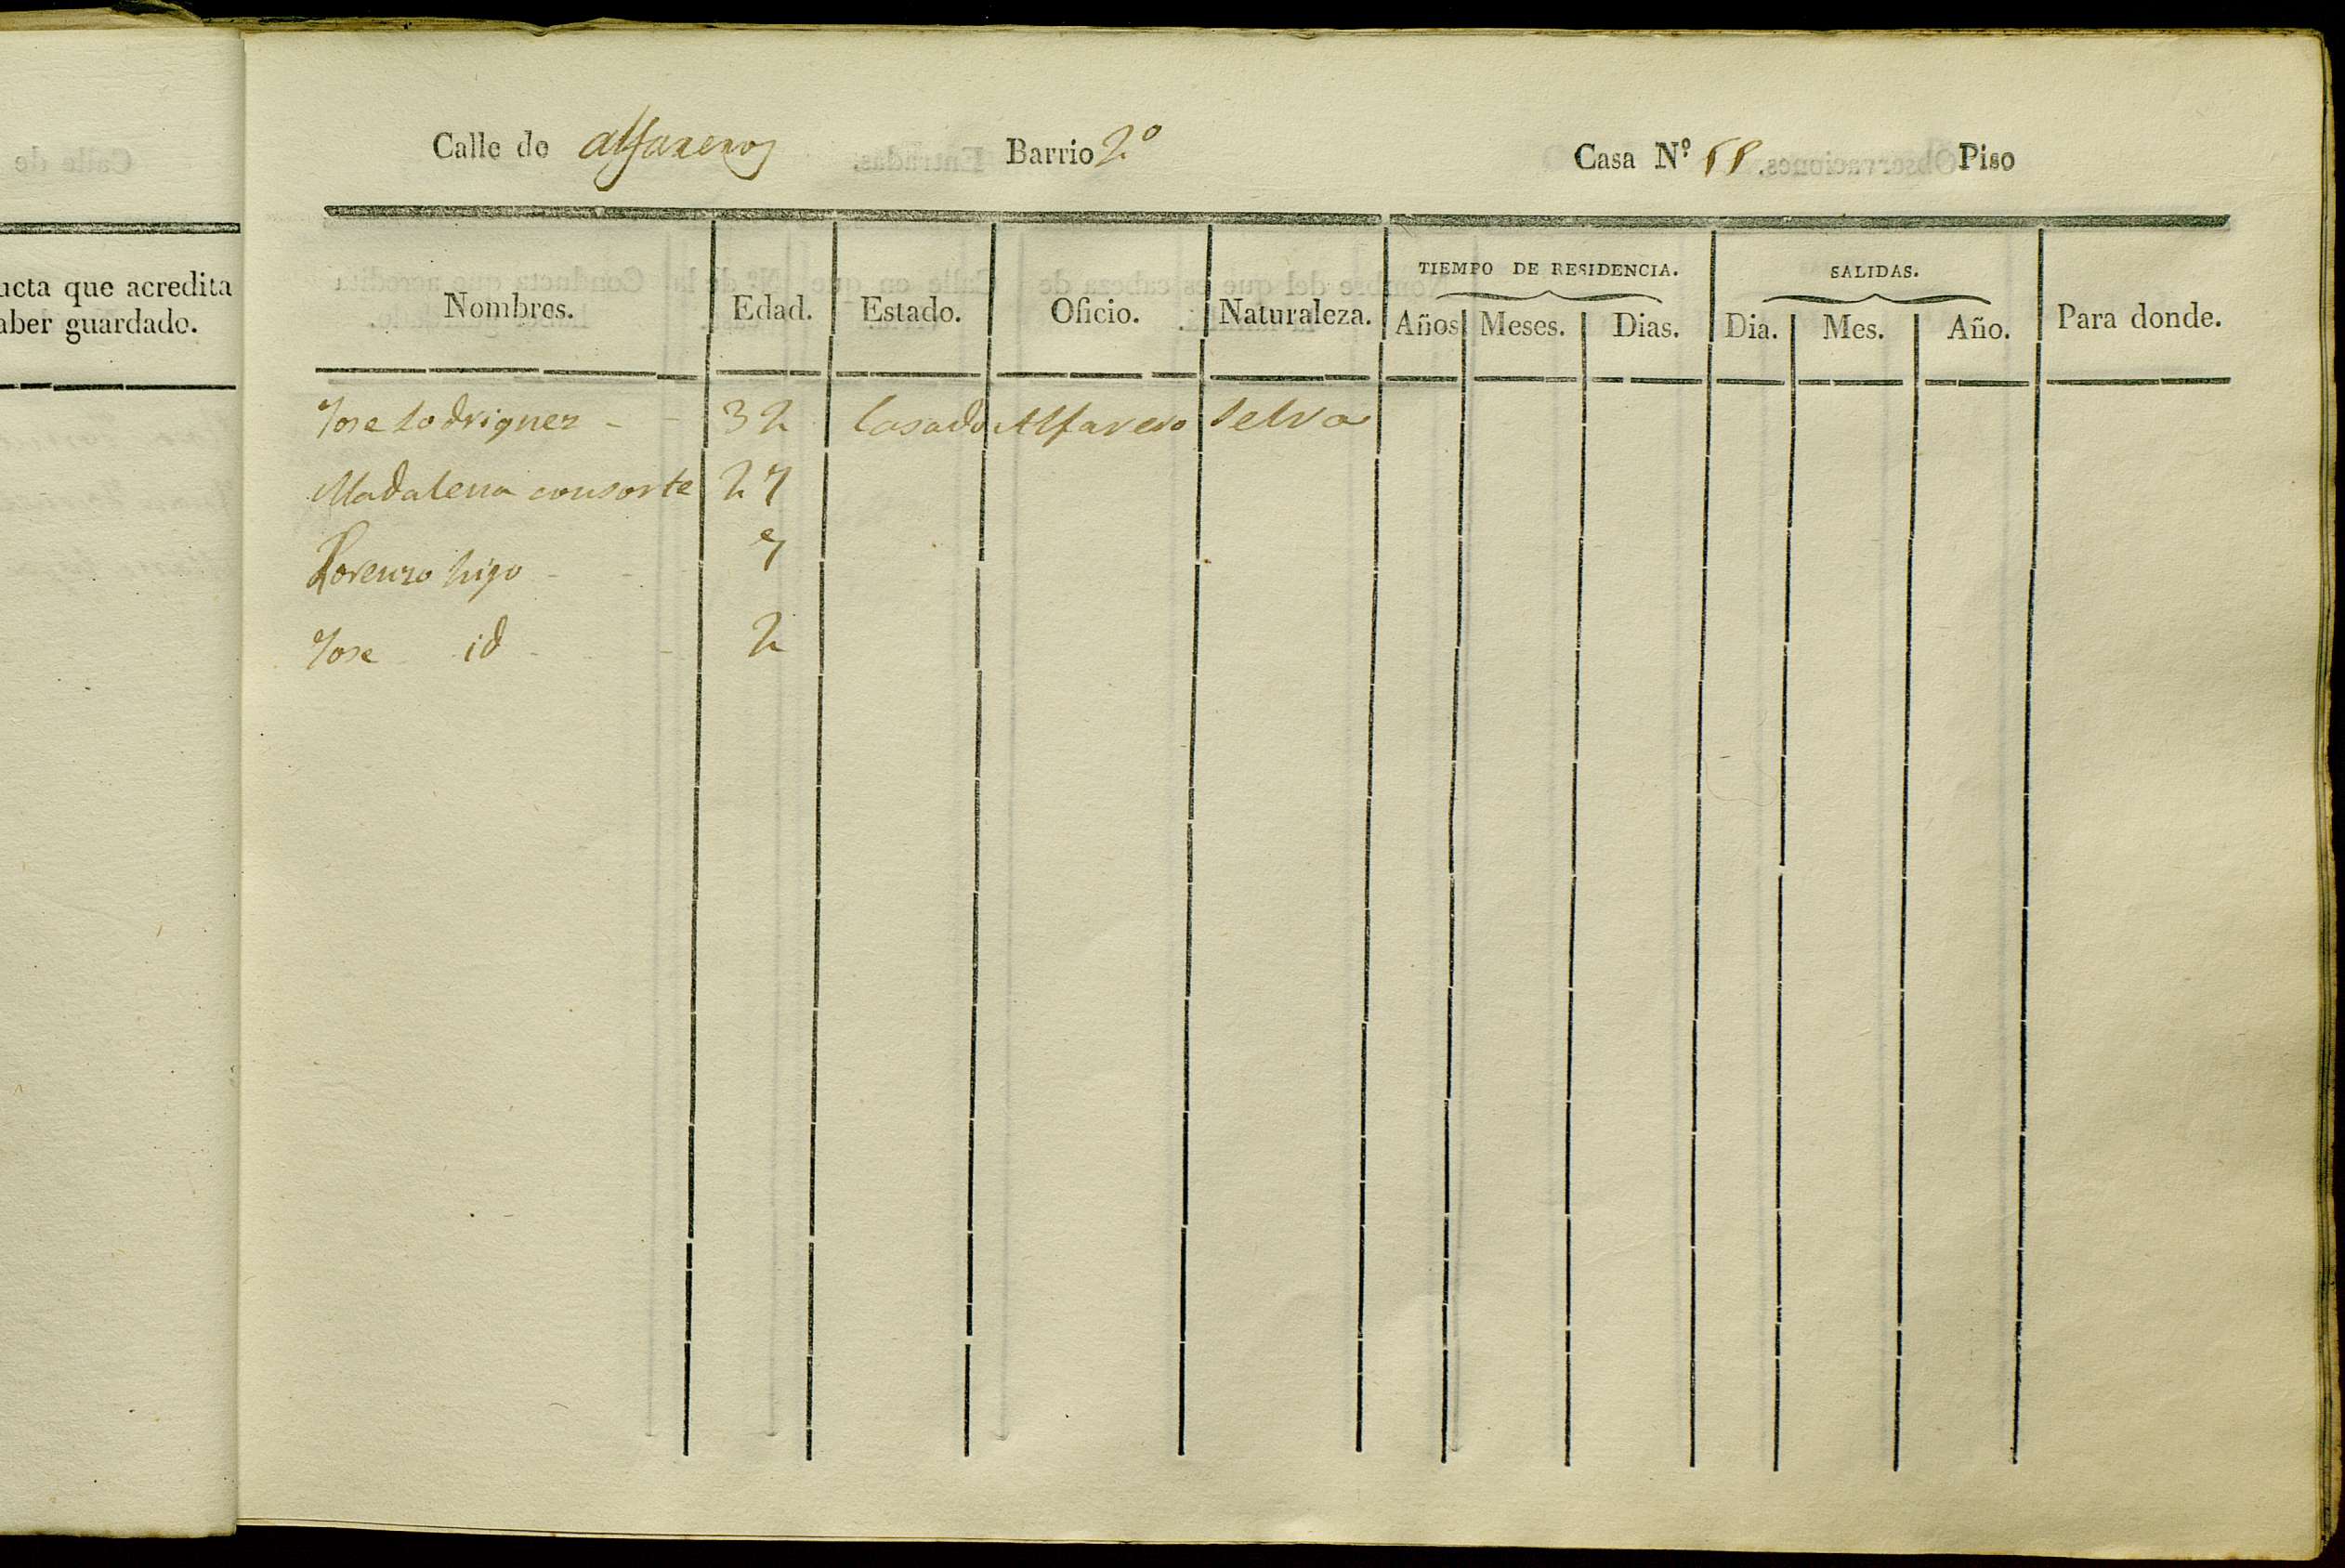 Calle de alfareros Barrio 2.º Casa Nº Piso
ucta que acredita
aber guardado.
Nombres. Edad. Estado. Oficio. Naturaleza. TIEMPO DE RESIDENCIA. Años Meses. Dias. SALIDAS. Dia. Mes. Año. Para donde.
Jose Rodriguez - - 32 Casado Alfarero Selva
Madalena consorte 27
Lorenzo hijo - - 7
Jose id - - 2